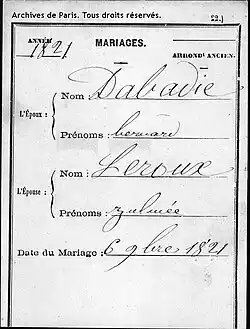 Archives de Paris. Tous droits réservés.
22.j
ANNÉE
MARIAGES.
1821
ARRONDT ANCIEN.
Nom : Dabadie
L'Époux :
Prénoms : bernard
Nom : Leroux
L'Épouse :
Prénoms : zulmée
Date du Mariage : 6 9bre 1821